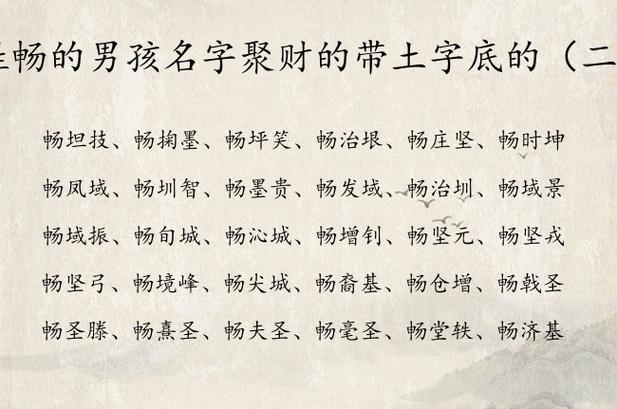 畅的男孩名字聚财的带土字底的（二
畅坦技、畅掬墨、畅坪笑、畅治垠、畅庄坚、畅时坤
畅凤域、畅圳智、畅墨贵、畅发域、畅治圳、畅域景
畅域振、畅旬城、畅沁城、畅增钊、畅坚元、畅坚戎
畅坚弓、畅境峰、畅尖城、畅裔基、畅仓增、畅戟圣
畅圣滕、畅熹圣、畅夫圣、畅毫圣、畅堂轶、畅济基